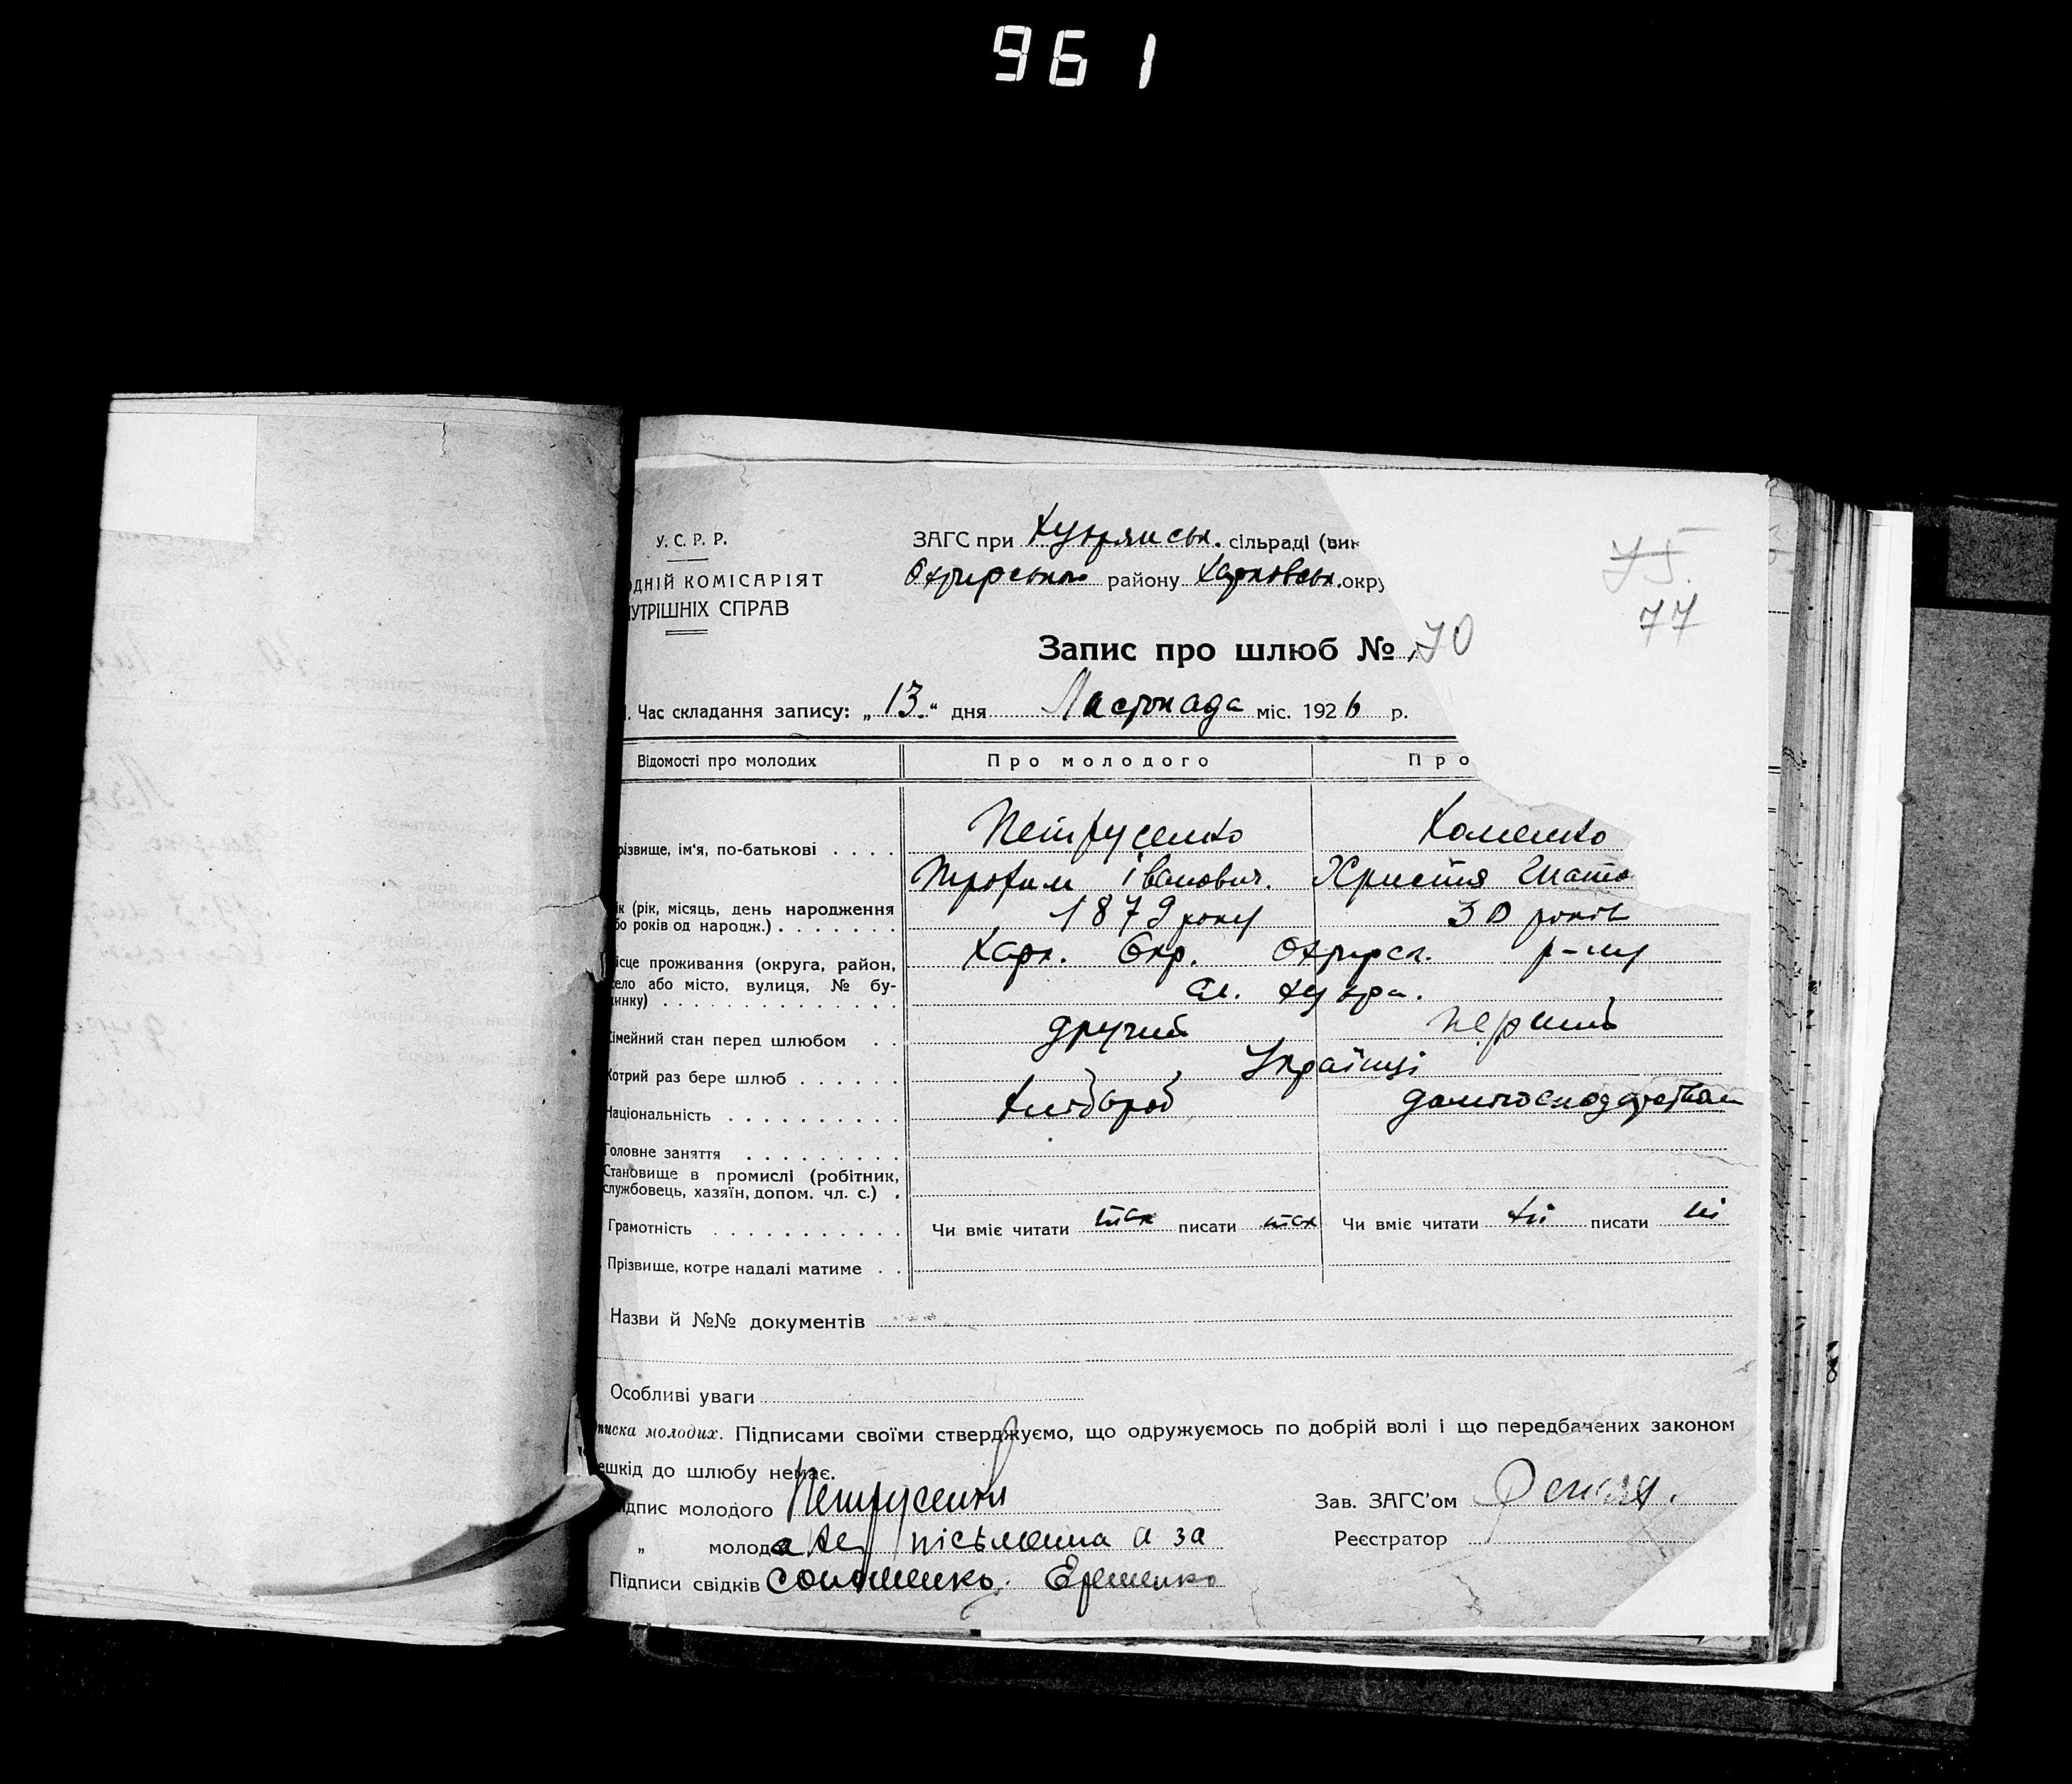 961
У. С. Р. Р.
ОДНІЙ КОМІСАРІЯТ
УТРІШНІХ СПРАВ
ЗАГС при сільраді (вик
району Харковськ. окру
75.
77
Запис про шлюб № 70
Час складання запису: „13." дня Листопада міс. 1926 р.
Відомості про молодих Про молодого Про
різвище, ім'я, по-батькові . . . . Петрусенко Хоменко
Трохим Іванович. Христя Гнато
ік (рік, місяць, день народження 1879 року 30 років
бо років од народж.) . . . . . . .
ісце проживання (округа, район, Харк. Окр. Охтирск. р-ну
село або місто, вулиця, № бу-
динку) . . . . . . . . . . . . сл.
Сімейний стан перед шлюбом . . другий перший
Котрий раз бере шлюб . . . . . . Українці
Національність . . . . . . . . . . Хлібороб
Головне заняття . . . . . . . . .
Становище в промислі (робітник,
службовець, хазяїн, допом. чл. с.) .
Грамотність . . . . . . . . . . . Чи вміє читати так писати так Чи вміє читати ні писати ні
Прізвище, котре надалі матиме . .
Назви й №№ документів
Особливі уваги
писка молодих. Підписами своїми стверджуємо, що одружуємось по добрій волі і що передбачених законом
ешкід до шлюбу немає.
ідпис молодого Петрусенко Зав. ЗАГС'ом
„ молодо а не письменна а за Реєстратор
Підписи свідків Єременко